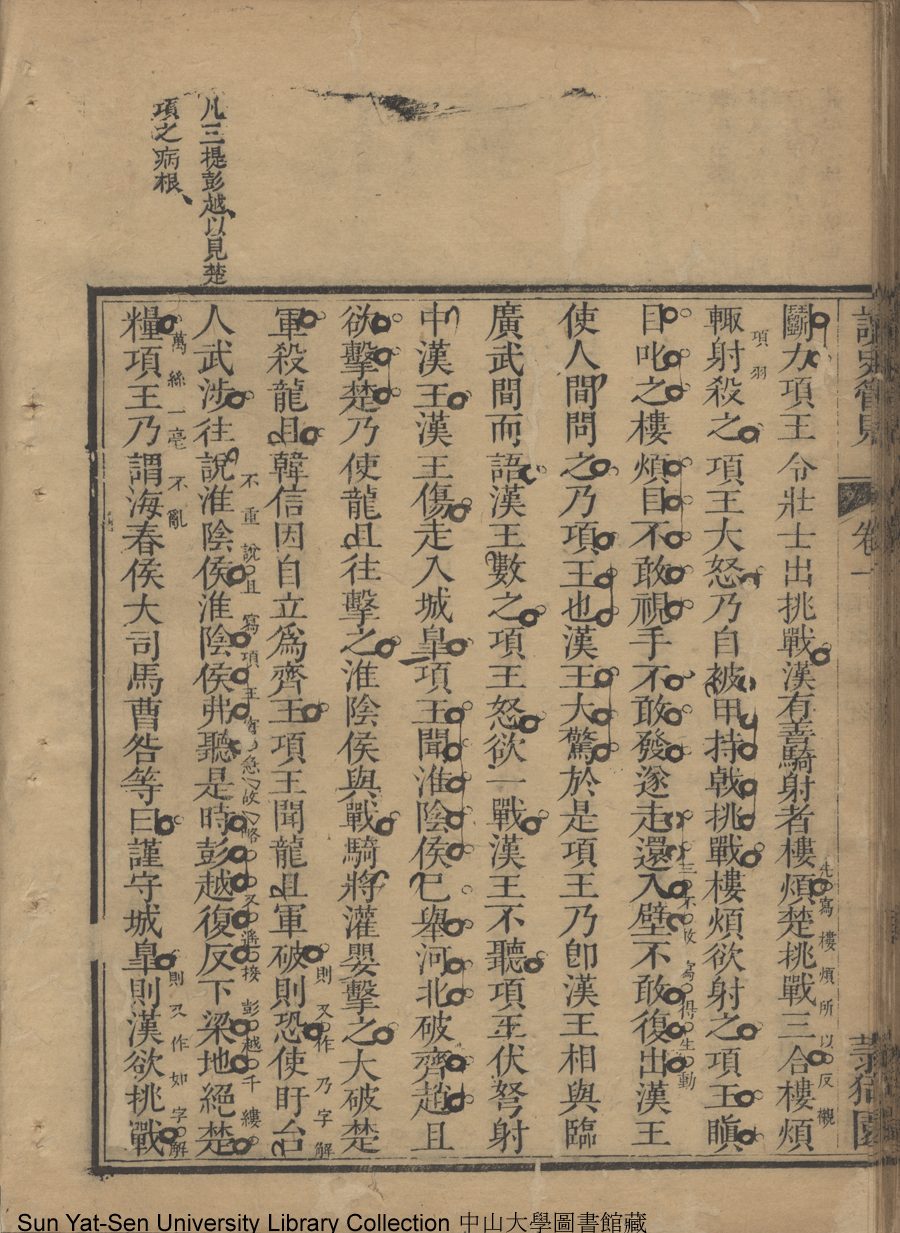 凡三提彭越以見楚
項之病根
讀史管見 卷一
鬭力項王令壯士出挑戰漢有善騎射者樓煩楚挑戰三合樓煩
先寫樓煩所以反襯
項羽
輒射殺之項王大怒乃自被甲持戟挑戰樓煩欲射之項王瞋
目叱之樓煩目不敢視手不敢發遂走還入壁不敢復出漢王
三不敢寫得生動
使人間問之乃項王也漢王大驚於是項王乃卽漢王相與臨
廣武間而語漢王數之項王怒欲一戰漢王不聽項王伏弩射
中漢王漢王傷走入城皐項王聞淮陰侯已舉河北破齊趙且
欲擊楚乃使龍且往擊之淮陰侯與戰騎將灌嬰擊之大破楚
軍殺龍且韓信因自立爲齊王項王聞龍且軍破則恐使盱台
則又作乃字解
人武涉往說淮陰侯淮陰侯弗聽是時彭越復反下梁地絕楚
不重說且寫項王窘急故略又遙接彭越千縷
萬絲一毫不亂
糧項王乃謂海春侯大司馬曹咎等曰謹守城皐則漢欲挑戰
則又作如字解
Sun Yat-Sen University Library Collection 中山大學圖書館藏